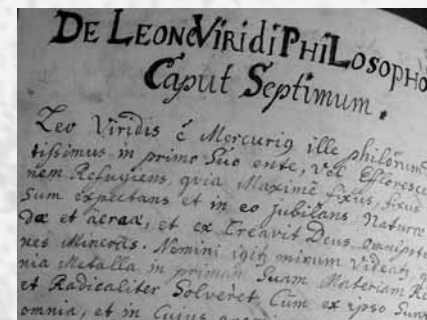 De Leone Viridi Philosopho
Caput Septimum.
Leo Viridis ē Mercuriq ille philōrum
tissimus in primo suo ente, vel Effloresce
nem Refugiens, quia Maximè fixus, fixus
Sum expectans et in eo jubilans Naturæ
dæ et aeraæ, et ex Creavit Deus
nes Minoris. Nemini igit mirum Videat, q
nia Metalla in primam Suam Materiam Re
et Radicaliter Solveret, Cum ex ipso Sun
omnia, et in Cujus